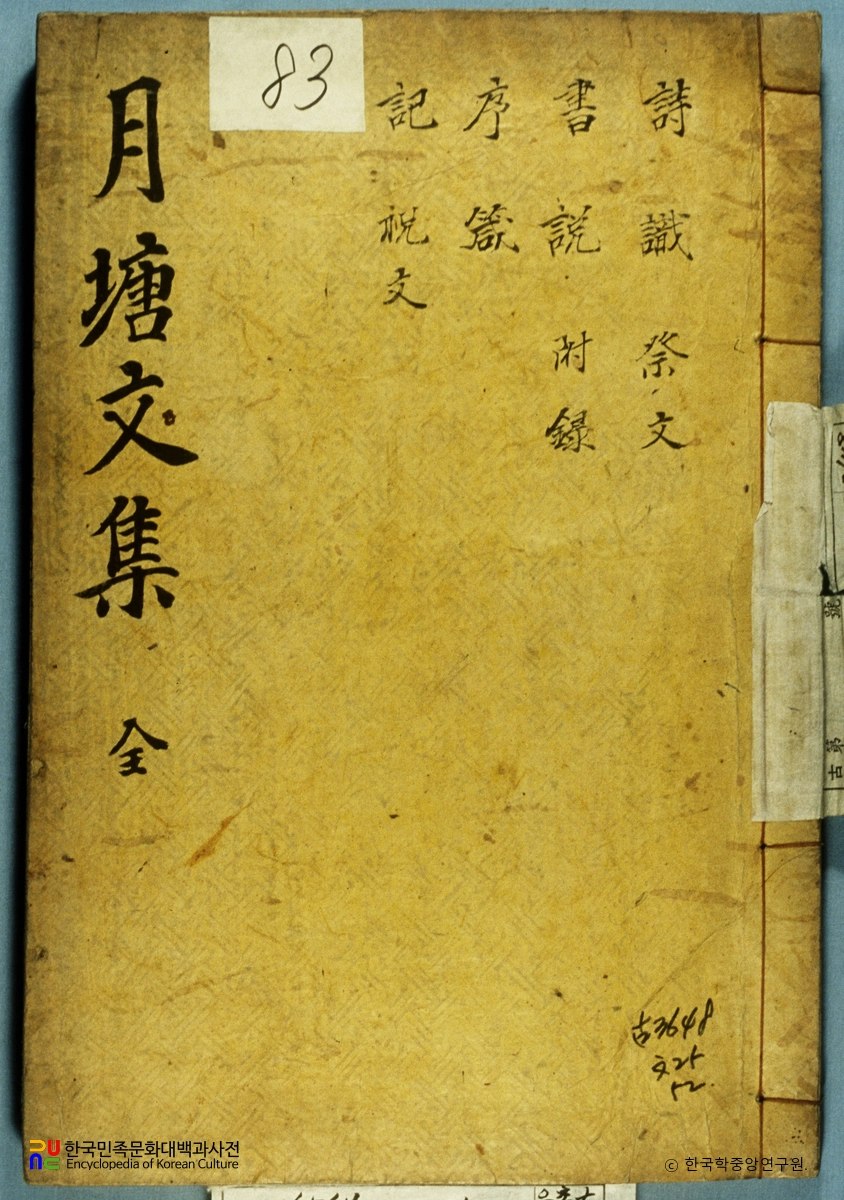 詩 識 祭文
書 說 附錄
序 箴
記 祝文
83
月塘文集 全
古3648
文25
52
한국민족문화대백과사전
Encyclopedia of Korean Culture
© 한국학중앙연구원.